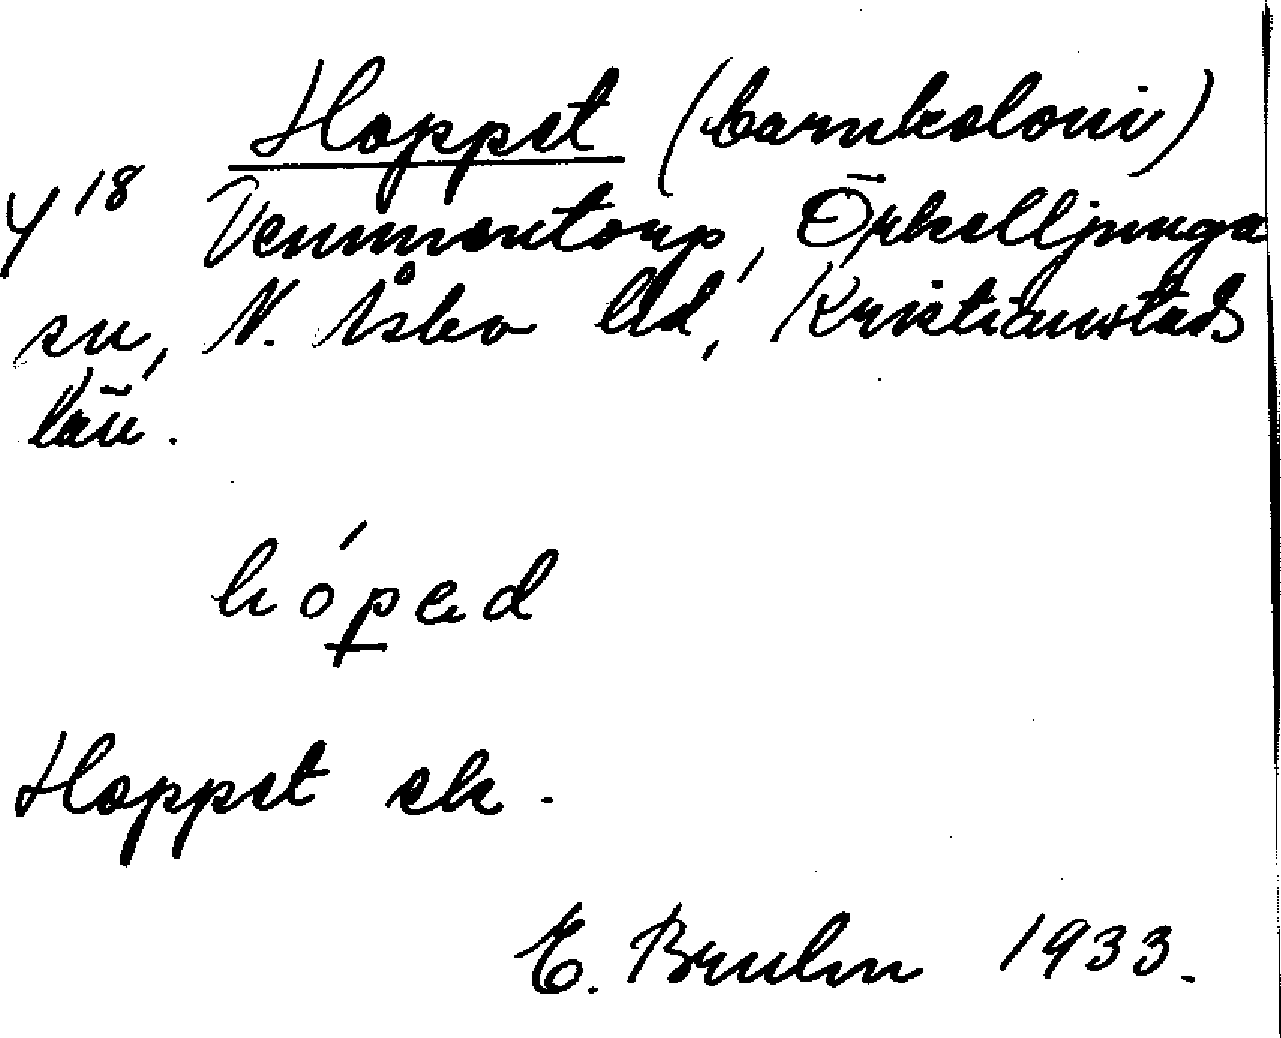 Hoppet (barnkoloni)
Y 18 Vemmentorp, Örkelljunga
sn, N. Åsbo hd, Kristianstads
län.
hóped
Hoppet ek.
E. Bruhn 1933.